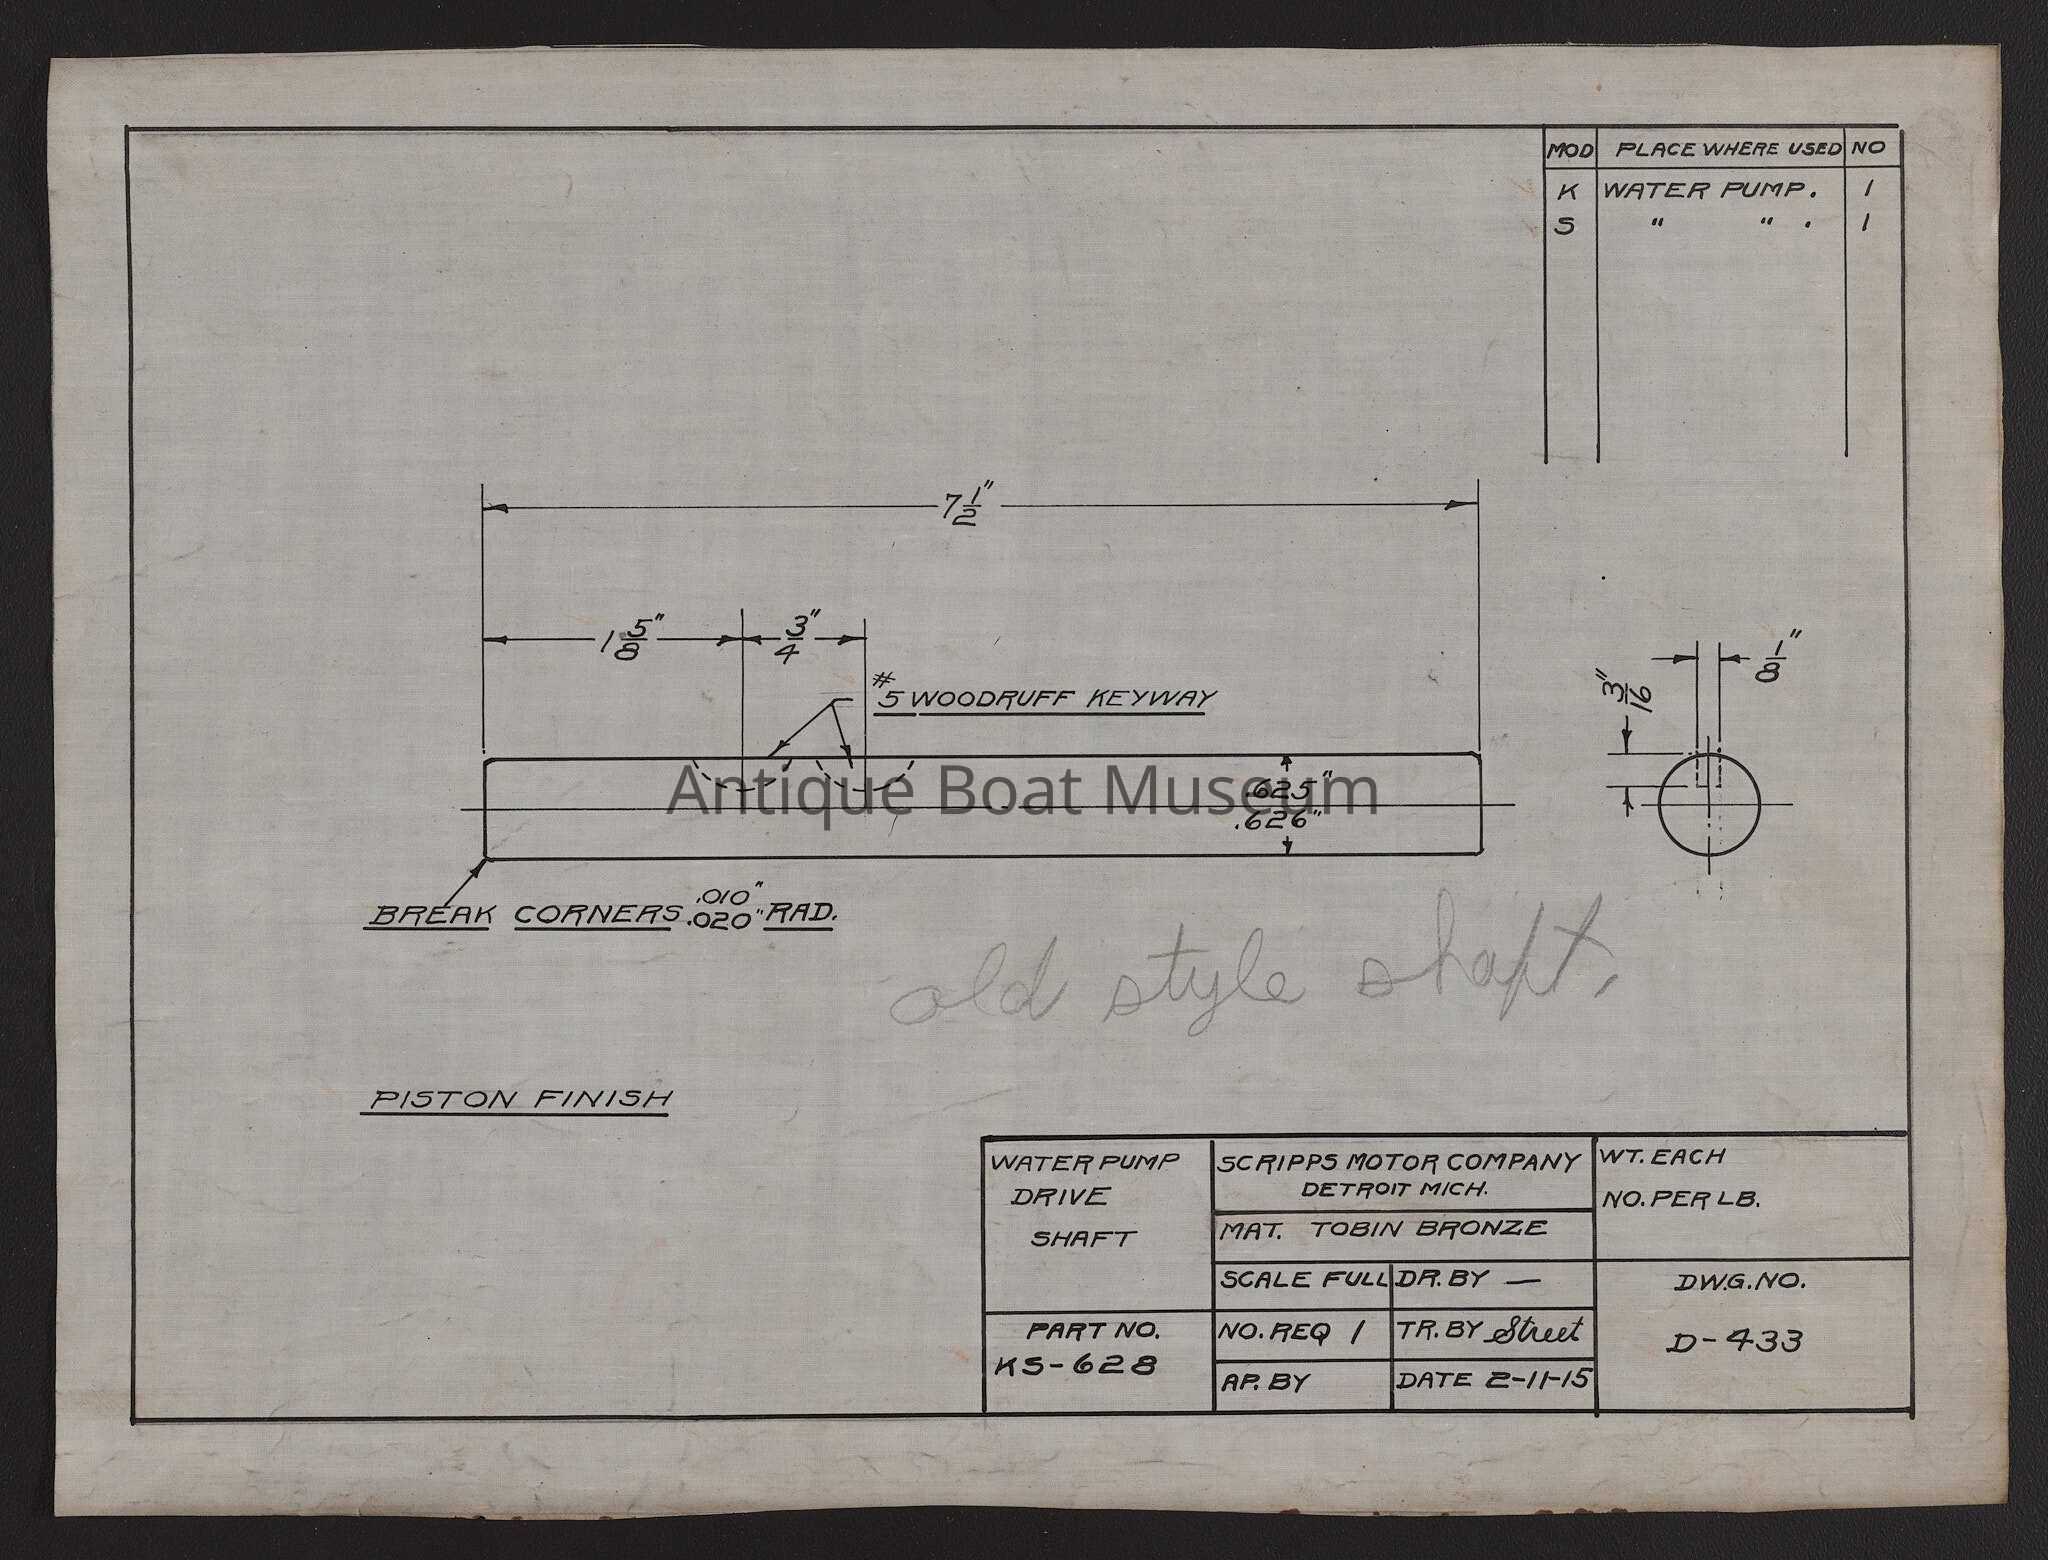 MOD PLACE WHERE USED NO
K WATER PUMP. 1
S " " . 1
7 1/2"
1 5/8" 3/4"
#5 WOODRUFF KEYWAY
1/8"
3/16"
.625"
.626"
Antique Boat Museum
BREAK CORNERS .010" .020" RAD.
old style shaft.
PISTON FINISH
WATER PUMP
DRIVE
SHAFT
PART NO.
KS-628
SCRIPPS MOTOR COMPANY
DETROIT MICH.
MAT. TOBIN BRONZE
SCALE FULL DR. BY —
NO. REQ 1 TR. BY Street
AP. BY DATE 2-11-15
WT. EACH
NO. PER LB.
DWG. NO.
D-433